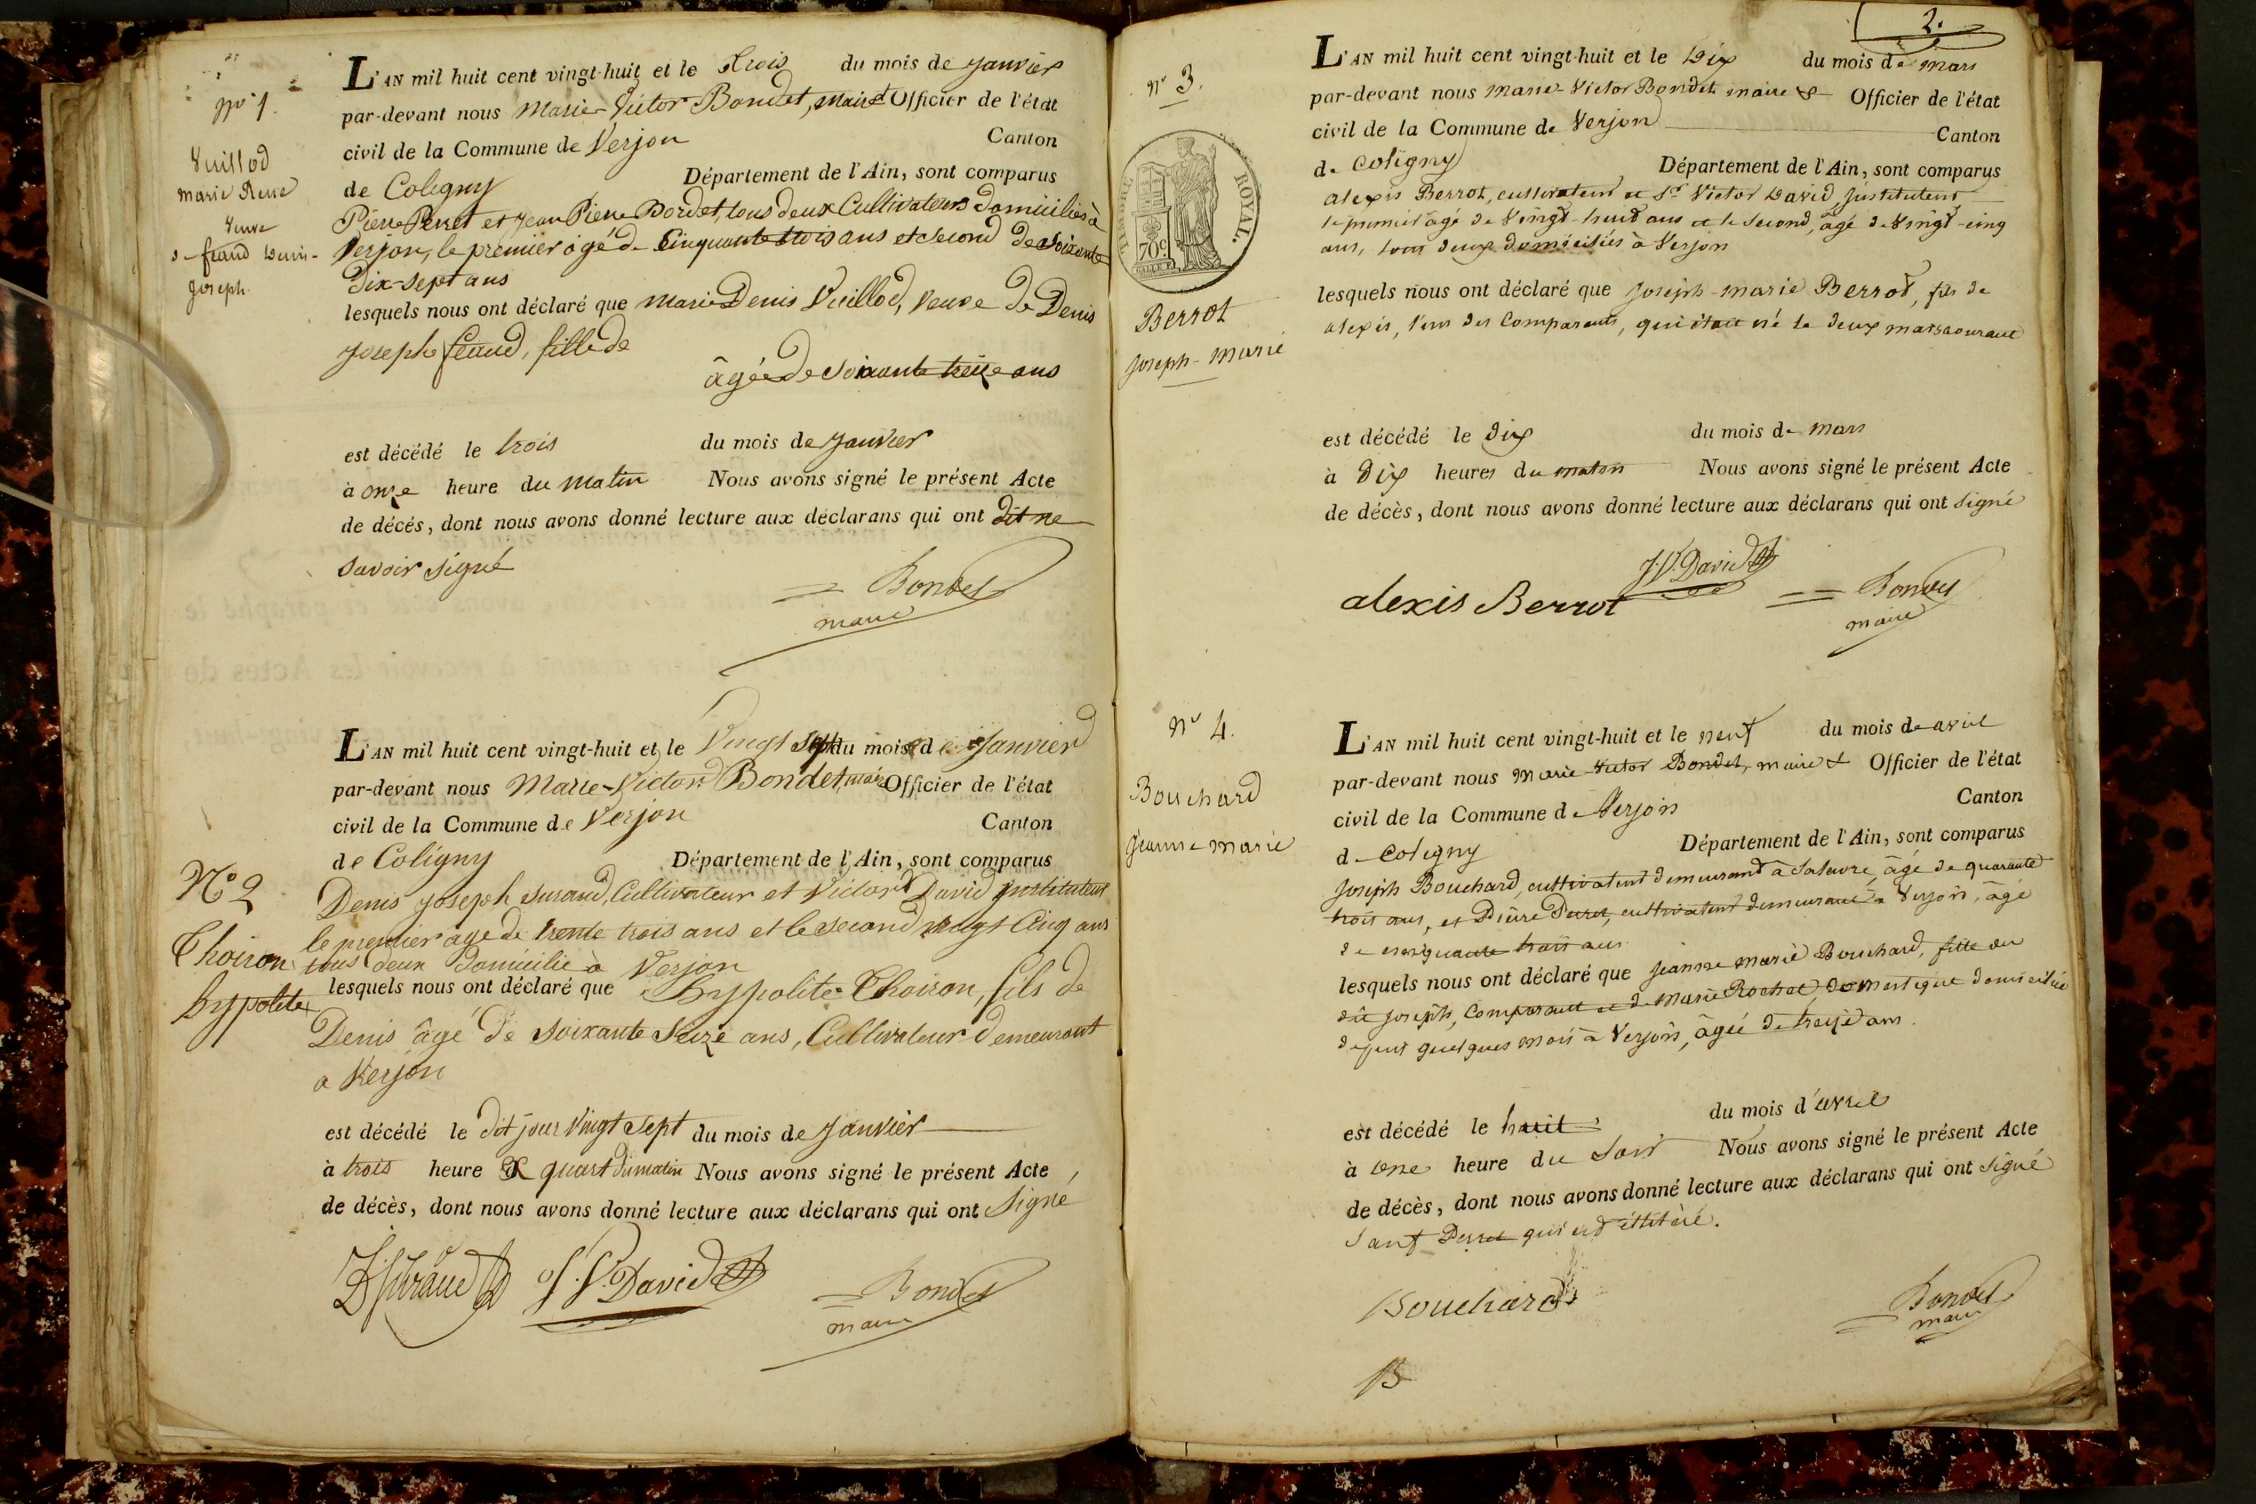 N° 1.
Vuillod
marie Denise
Veuve
de feaud Denis-
Joseph.
L'AN mil huit cent vingt-huit et le trois du mois de Janvier
par-devant nous Marie-Victor Bondet, maire & Officier de l'état
civil de la Commune de Verjon Canton
de Coligny Département de l'Ain, sont comparus
Pierre Perret et Jean Pierre Bordet, tous deux Cultivateurs domiciliés à
Verjon, le premier âgé de Cinquante trois ans et Second de Soixante
Dix-sept ans
lesquels nous ont déclaré que Marie Denis Vuillod, Veuve de Denis
Joseph feaud, fille de
âgée de soixante treize ans
est décédé le trois du mois de Janvier
à onze heure du Matin Nous avons signé le présent Acte
de décés, dont nous avons donné lecture aux déclarans qui ont dit ne
savoir signé
Bondet
maire
N° 2
Thoiron
hypolite
L'AN mil huit cent vingt-huit et le Vingt sept du mois de Janvier
par-devant nous Marie-Victor Bondet, maire Officier de l'état
civil de la Commune de Verjon Canton
de Coligny Département de l'Ain, sont comparus
Denis Joseph Suraud, Cultivateur et Victor David instituteur
le premier âgé de trente trois ans et le second vingt Cinq ans
tous deux Domicilié à Verjon
lesquels nous ont déclaré que hypolite Thoiron, fils de
Denis âgé de Soixante Seize ans, Cultivateur demeurant
a Verjon
est décédé le dit jour Vingt sept du mois de Janvier
à trois heure & quart du matin Nous avons signé le présent Acte
de décès, dont nous avons donné lecture aux déclarans qui ont Signé
J. V. David
Bondet
maire
2.
N° 3.
TIMBRE ROYAL.
70c.
Berrot
Joseph-Marie
L'AN mil huit cent vingt-huit et le Dix du mois de mars
par-devant nous marie-Victor Bondet maire & Officier de l'état
civil de la Commune de Verjon Canton
de Coligny Département de l'Ain, sont comparus
alexis Berrot, cultivateur et Sr Victor David Instituteur
le premier âgé de Vingt-huit ans et le Second, âgé de Vingt-cinq
ans, tous deux domiciliés à Verjon
lesquels nous ont déclaré que Joseph-Marie Berrot, fils de
alexis, l'un des Comparants, qui était né le deux mars courant
est décédé le dix du mois de mars
à dix heures du matin Nous avons signé le présent Acte
de décès, dont nous avons donné lecture aux déclarans qui ont Signé
J. V. David
alexis Berrot
Bondet
maire
N° 4.
Bouchard
Jeanne-Marie
L'AN mil huit cent vingt-huit et le neuf du mois de avril
par-devant nous Marie-Victor Bondet, maire & Officier de l'état
civil de la Commune de Verjon Canton
de Coligny Département de l'Ain, sont comparus
Joseph Bouchard, cultivateur demeurant à Salavre, âgé de quarante
trois ans, et Pierre Perret, cultivateur demeurant à Verjon, âgé
de cinquante trois ans
lesquels nous ont déclaré que Jeanne Marie Bouchard, fille du
dit Joseph, Comparant et de Marie Rochet, domestique domiciliée
depuis quelques mois à Verjon, âgée de treize ans.
est décédé le huit du mois d'avril
à une heure du Soir Nous avons signé le présent Acte
de décès, dont nous avons donné lecture aux déclarans qui ont signé
Sauf Perret qui est illitéré.
Bouchard
Bondet
maire
B